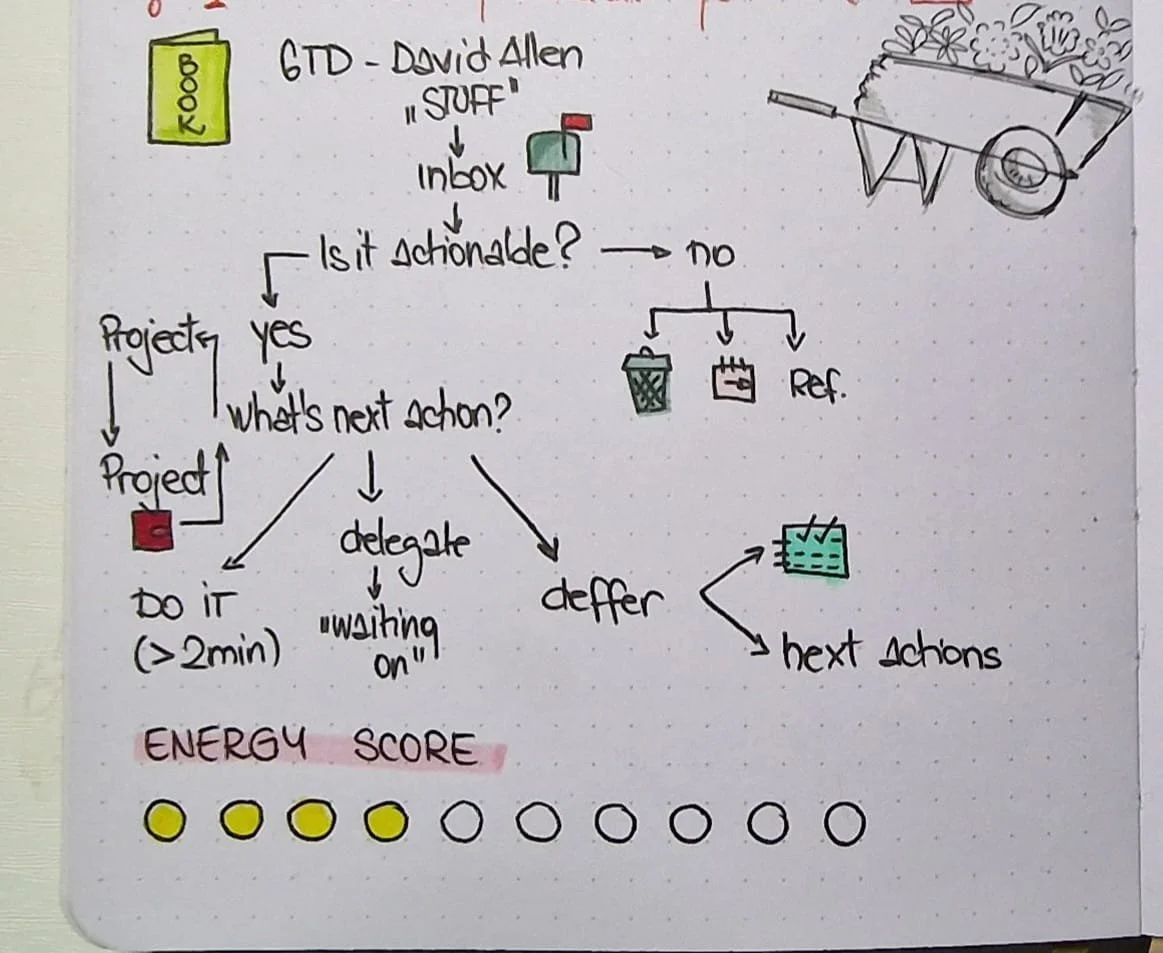 BOOK
GTD - David Allen
"STUFF"
inbox
Is it actionalde?
no
Projects
yes
Ref.
What's next action?
Project
delegate
deffer
DO iT
(>2min)
"waiting
on"
next actions
ENERGY SCORE